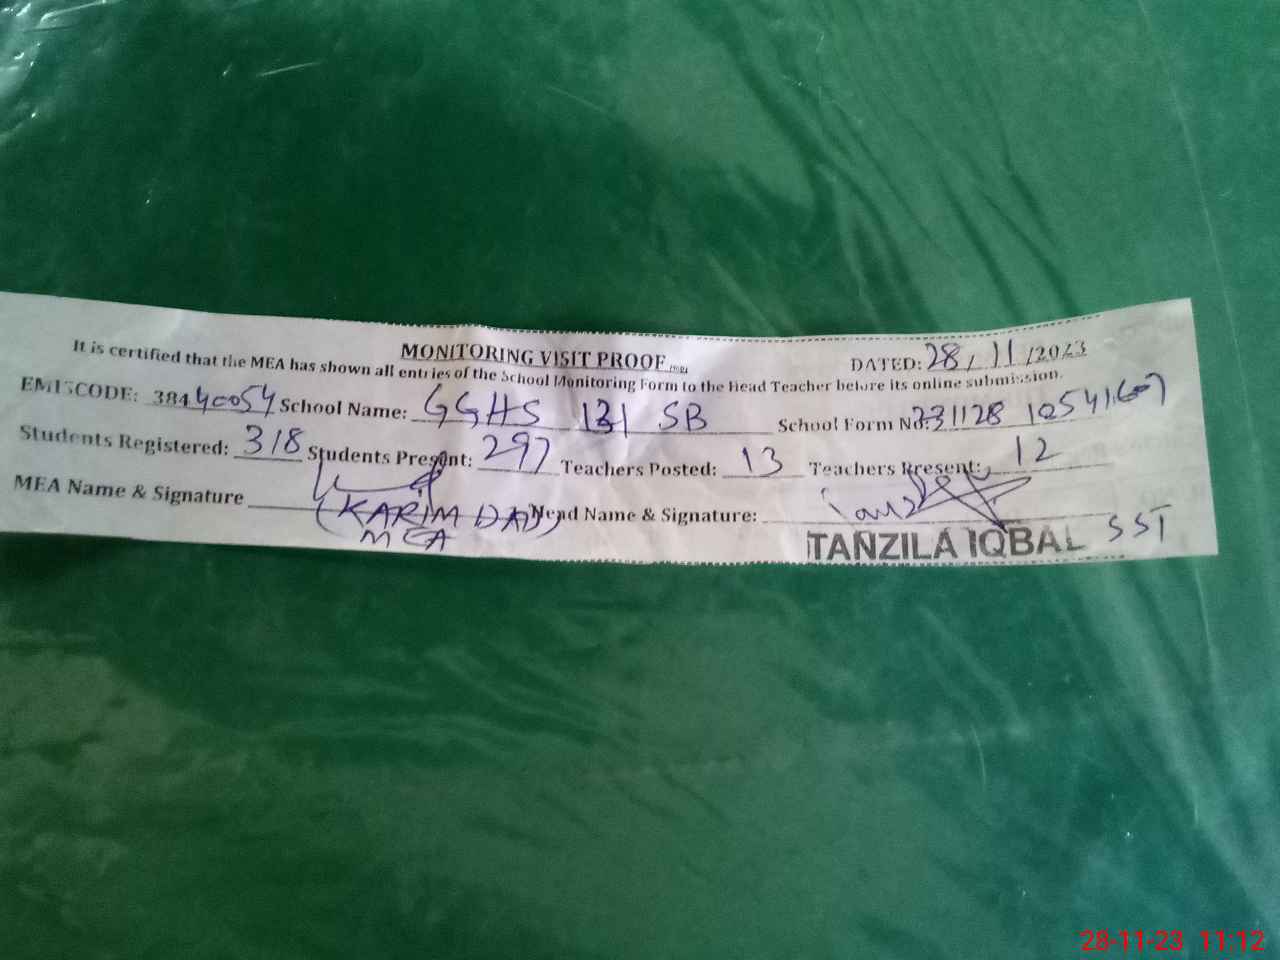 MONITORING VISIT PROOF DATED: 28/11/2023
It is certified that the MEA has shown all entries of the School Monitoring Form to the Head Teacher before its online submission.
EMISCODE: 38440054 School Name: GGHS 131 SB School Form No: 231128 10541607
Students Registered: 318 Students Present: 297 Teachers Posted: 13 Teachers Present: 12
MEA Name & Signature Head Name & Signature:
(KARIM DAD)
MEA
TANZILA IQBAL SST
28-11-23 11:12